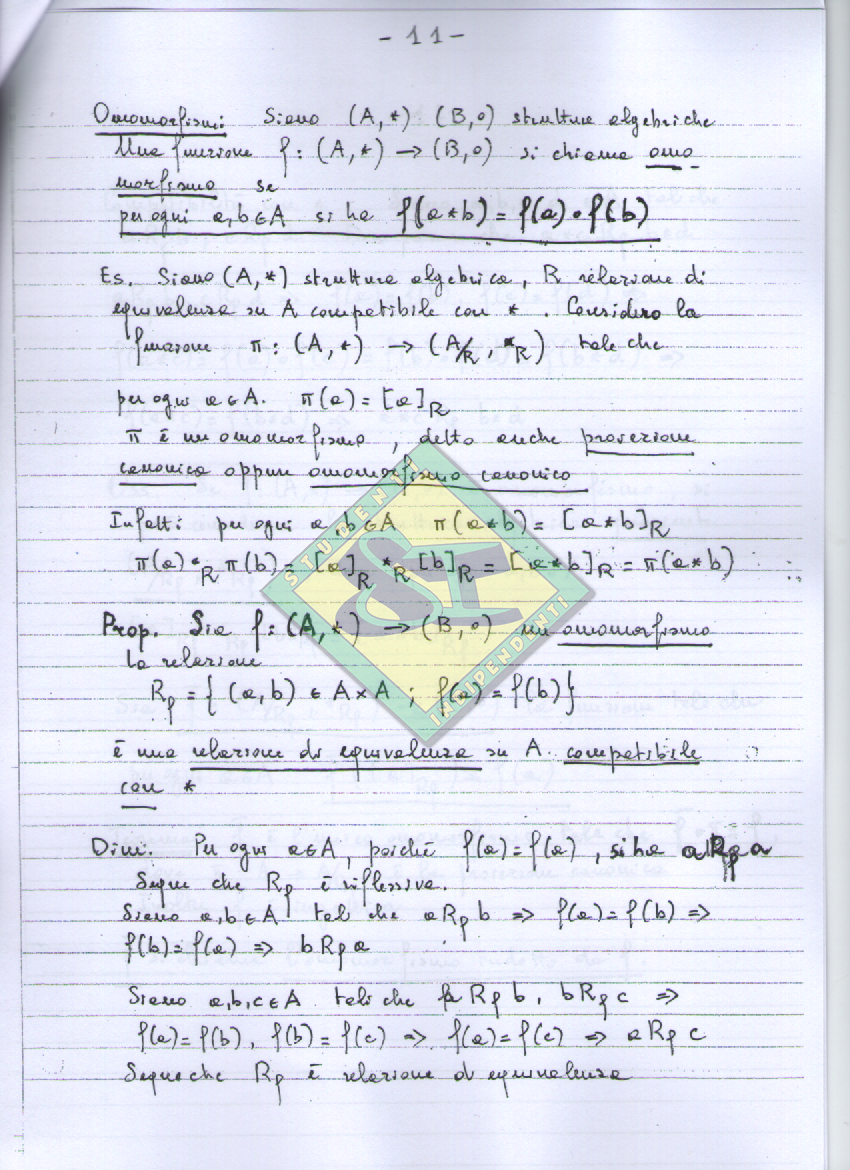 - 11 -
Omomorfismi: Siano (A,*) (B,∘) strutture algebriche
Una funzione f: (A,*) → (B,∘) si chiama omo
morfismo se
per ogni a,b ∈ A si ha f(a*b) = f(a)∘f(b)
Es. Siano (A,*) struttura algebrica, R relazione di
equivalenza su A compatibile con *. Considero la
funzione π: (A,*) → (A/R, *R) tale che
per ogni a ∈ A. π(a) = [a]R
π è un omomorfismo, detto anche proiezione
canonica oppure omomorfismo canonico
Infatti per ogni a,b ∈ A π(a*b) = [a*b]R
π(a) *R π(b) = [a]R *R [b]R = [a*b]R = π(a*b)
STUDENTI
INDIPENDENTI
Prop. Sia f: (A,*) → (B,∘) un omomorfismo
La relazione
Rf = { (a,b) ∈ A×A ; f(a) = f(b) }
è una relazione di equivalenza su A compatibile
con *
Dim. Per ogni a∈A, poiché f(a)=f(a), si ha a Rf a
Segue che Rf è riflessiva.
Siano a,b ∈ A tali che a Rf b => f(a)=f(b) =>
f(b)=f(a) => b Rf a
Siano a,b,c ∈ A tali che a Rf b, b Rf c =>
f(a)=f(b), f(b)=f(c) => f(a)=f(c) => a Rf c
Segue che Rf è relazione di equivalenza